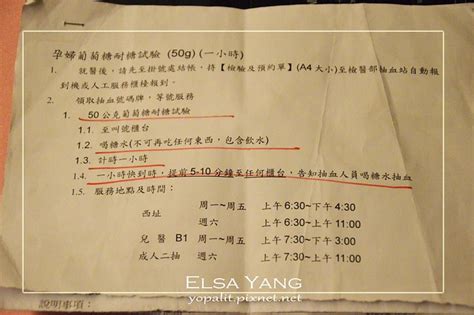 孕婦葡萄糖耐糖試驗 (50g) (一小時)
1. 就醫後，請先至掛號處結帳，持【檢驗及預約單】(A4 大小)至檢醫部抽血站自動報
到機或人工服務櫃檯報到。
2. 領取抽血號碼牌，等號服務
1. 50 公克葡萄糖耐糖試驗
1.1. 至叫號櫃台
1.2. 喝糖水(不可再吃任何東西，包含飲水)
1.3. 計時一小時
1.4. 一小時快到時，提前 5-10 分鐘至任何櫃台，告知抽血人員喝糖水抽血
1.5. 服務地點及時間：
西址 周一~周五 上午 6:30~下午 4:30
週六 上午 6:30~上午 11:00
兒醫 B1 周一~周五 上午 7:30~下午 3:30
成人二抽 週六 上午 7:30~上午 11:00
ELSA YANG
yopalit.pixnet.net
說明事項：